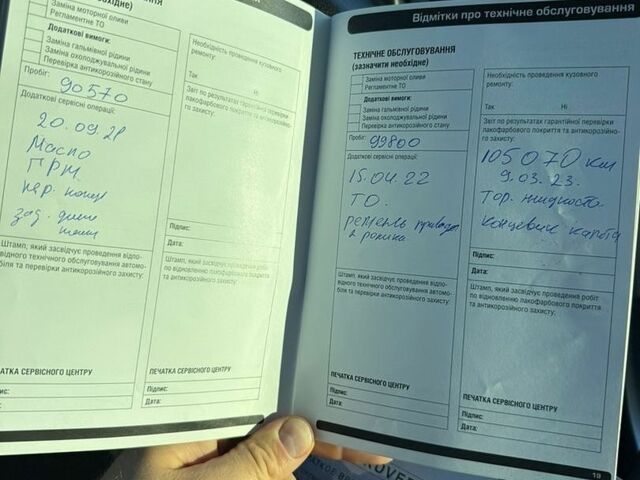 Заміна моторної оливи
Регламентне ТО
Додаткові вимоги:
Заміна гальмівної рідини
Заміна охолоджувальної рідини
Перевірка антикорозійного стану
Пробіг: 90570
Додаткові сервісні операції:
20.09.21
Масло
ПРМ
пер. колод
зад. диски
Штамп, який засвідчує проведення відпо-
відного технічного обслуговування автомо-
біля та перевірки антикорозійного захисту:
ПЕЧАТКА СЕРВІСНОГО ЦЕНТРУ
Необхідність проведення кузовного
ремонту:
Так Ні
Звіт по результатах гарантійної перевірки
лакофарбового покриття та антикорозійно-
го захисту:
Підпис:
Дата:
Штамп, який засвідчує проведення робіт
по відновленню лакофарбового покриття
та антикорозійного захисту:
ПЕЧАТКА СЕРВІСНОГО ЦЕНТРУ
Підпис:
Дата:
Відмітки про технічне обслуговування
ТЕХНІЧНЕ ОБСЛУГОВУВАННЯ
(зазначити необхідне)
Заміна моторної оливи
Регламентне ТО
Додаткові вимоги:
Заміна гальмівної рідини
Заміна охолоджувальної рідини
Перевірка антикорозійного стану
Пробіг: 99800
Додаткові сервісні операції:
15.04.22
ТО.
ремень
2 ролика
Штамп, який засвідчує проведення відпо-
відного технічного обслуговування автомо-
біля та перевірки антикорозійного захисту:
ПЕЧАТКА СЕРВІСНОГО ЦЕНТРУ
Підпис:
Дата:
Необхідність проведення кузовного
ремонту:
Так Ні
Звіт по результатах гарантійної перевірки
лакофарбового покриття та антикорозійно-
го захисту:
105070 км
9.03.23.
Тор. жидкость
концевик капота
Підпис:
Дата:
Штамп, який засвідчує проведення робіт
по відновленню лакофарбового покриття
та антикорозійного захисту:
ПЕЧАТКА СЕРВІСНОГО ЦЕНТРУ
Підпис:
Дата:
19